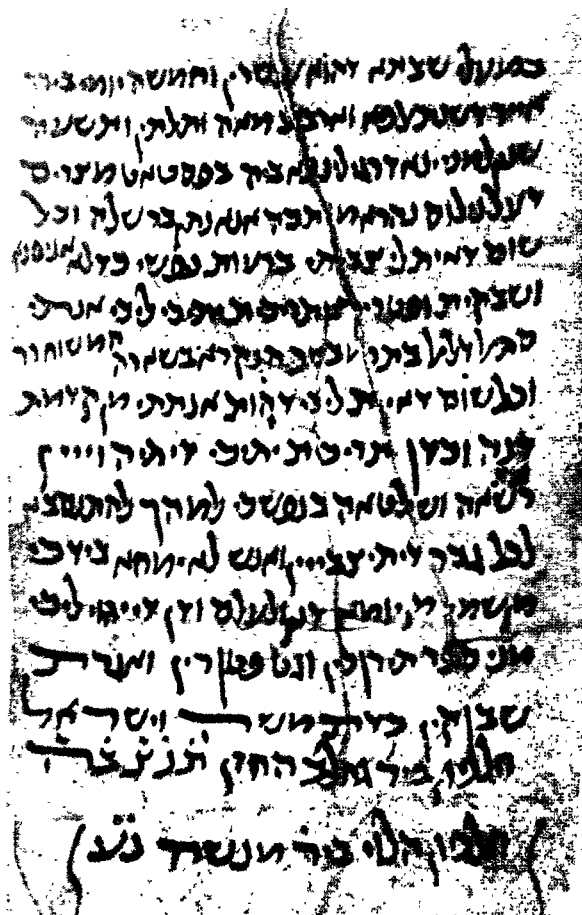 במעלי שבתא דהוא עשרין וחמשה יומי בירח
אייר דשנת אלפא וארבע מאה ותלתין ותשעה
שנין למניינא דרגילנא ביה בפסטאט מצרים
דעל נילוס נהרא מותבה אנא נתן בר שלה וכל
שום דאית לי צביתי ברעות נפשי כדלא אניסנא
ושבקית ופטרית ותריכית יתיכי ליכי אנתי
בשארה
וכל שום דאית ליכי דהוית אנתתי מן קדמת
דנה וכדן תריכית יתיכי דיתיהויייין
רשאה ושלטאה בנפשכי למהך להתנסבא
לכל גבר דיתיצבייין ואנש לא ימחא בידכי
מן שמי מן יומא דנן ולעלם ודן דייהוי ליכי
מני ספר תירוכין וגט פטורין ואגרת
שבוקין כדת משה וישראל
חלפון ביר החזן תנצבה
חלפון הלוי ביר מנשה נע